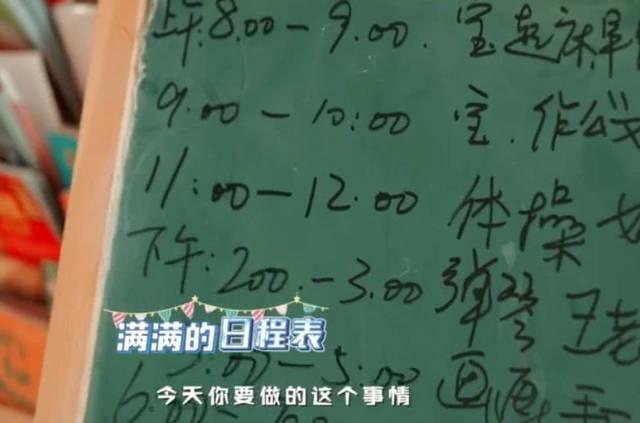 上午:8.00-9.00. 宝起床早
9.00-10:00 宝.作公文
11:00-12.00 体操
下午:2.00.-3.00 弹琴 王老
满满的日程表
-5:00 画画
今天你要做的这个事情
6:00-